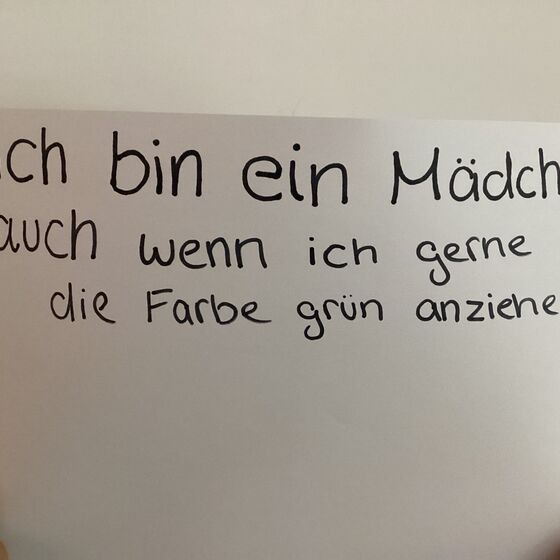 ich bin ein Mädch
auch wenn ich gerne
die Farbe grün anziehe